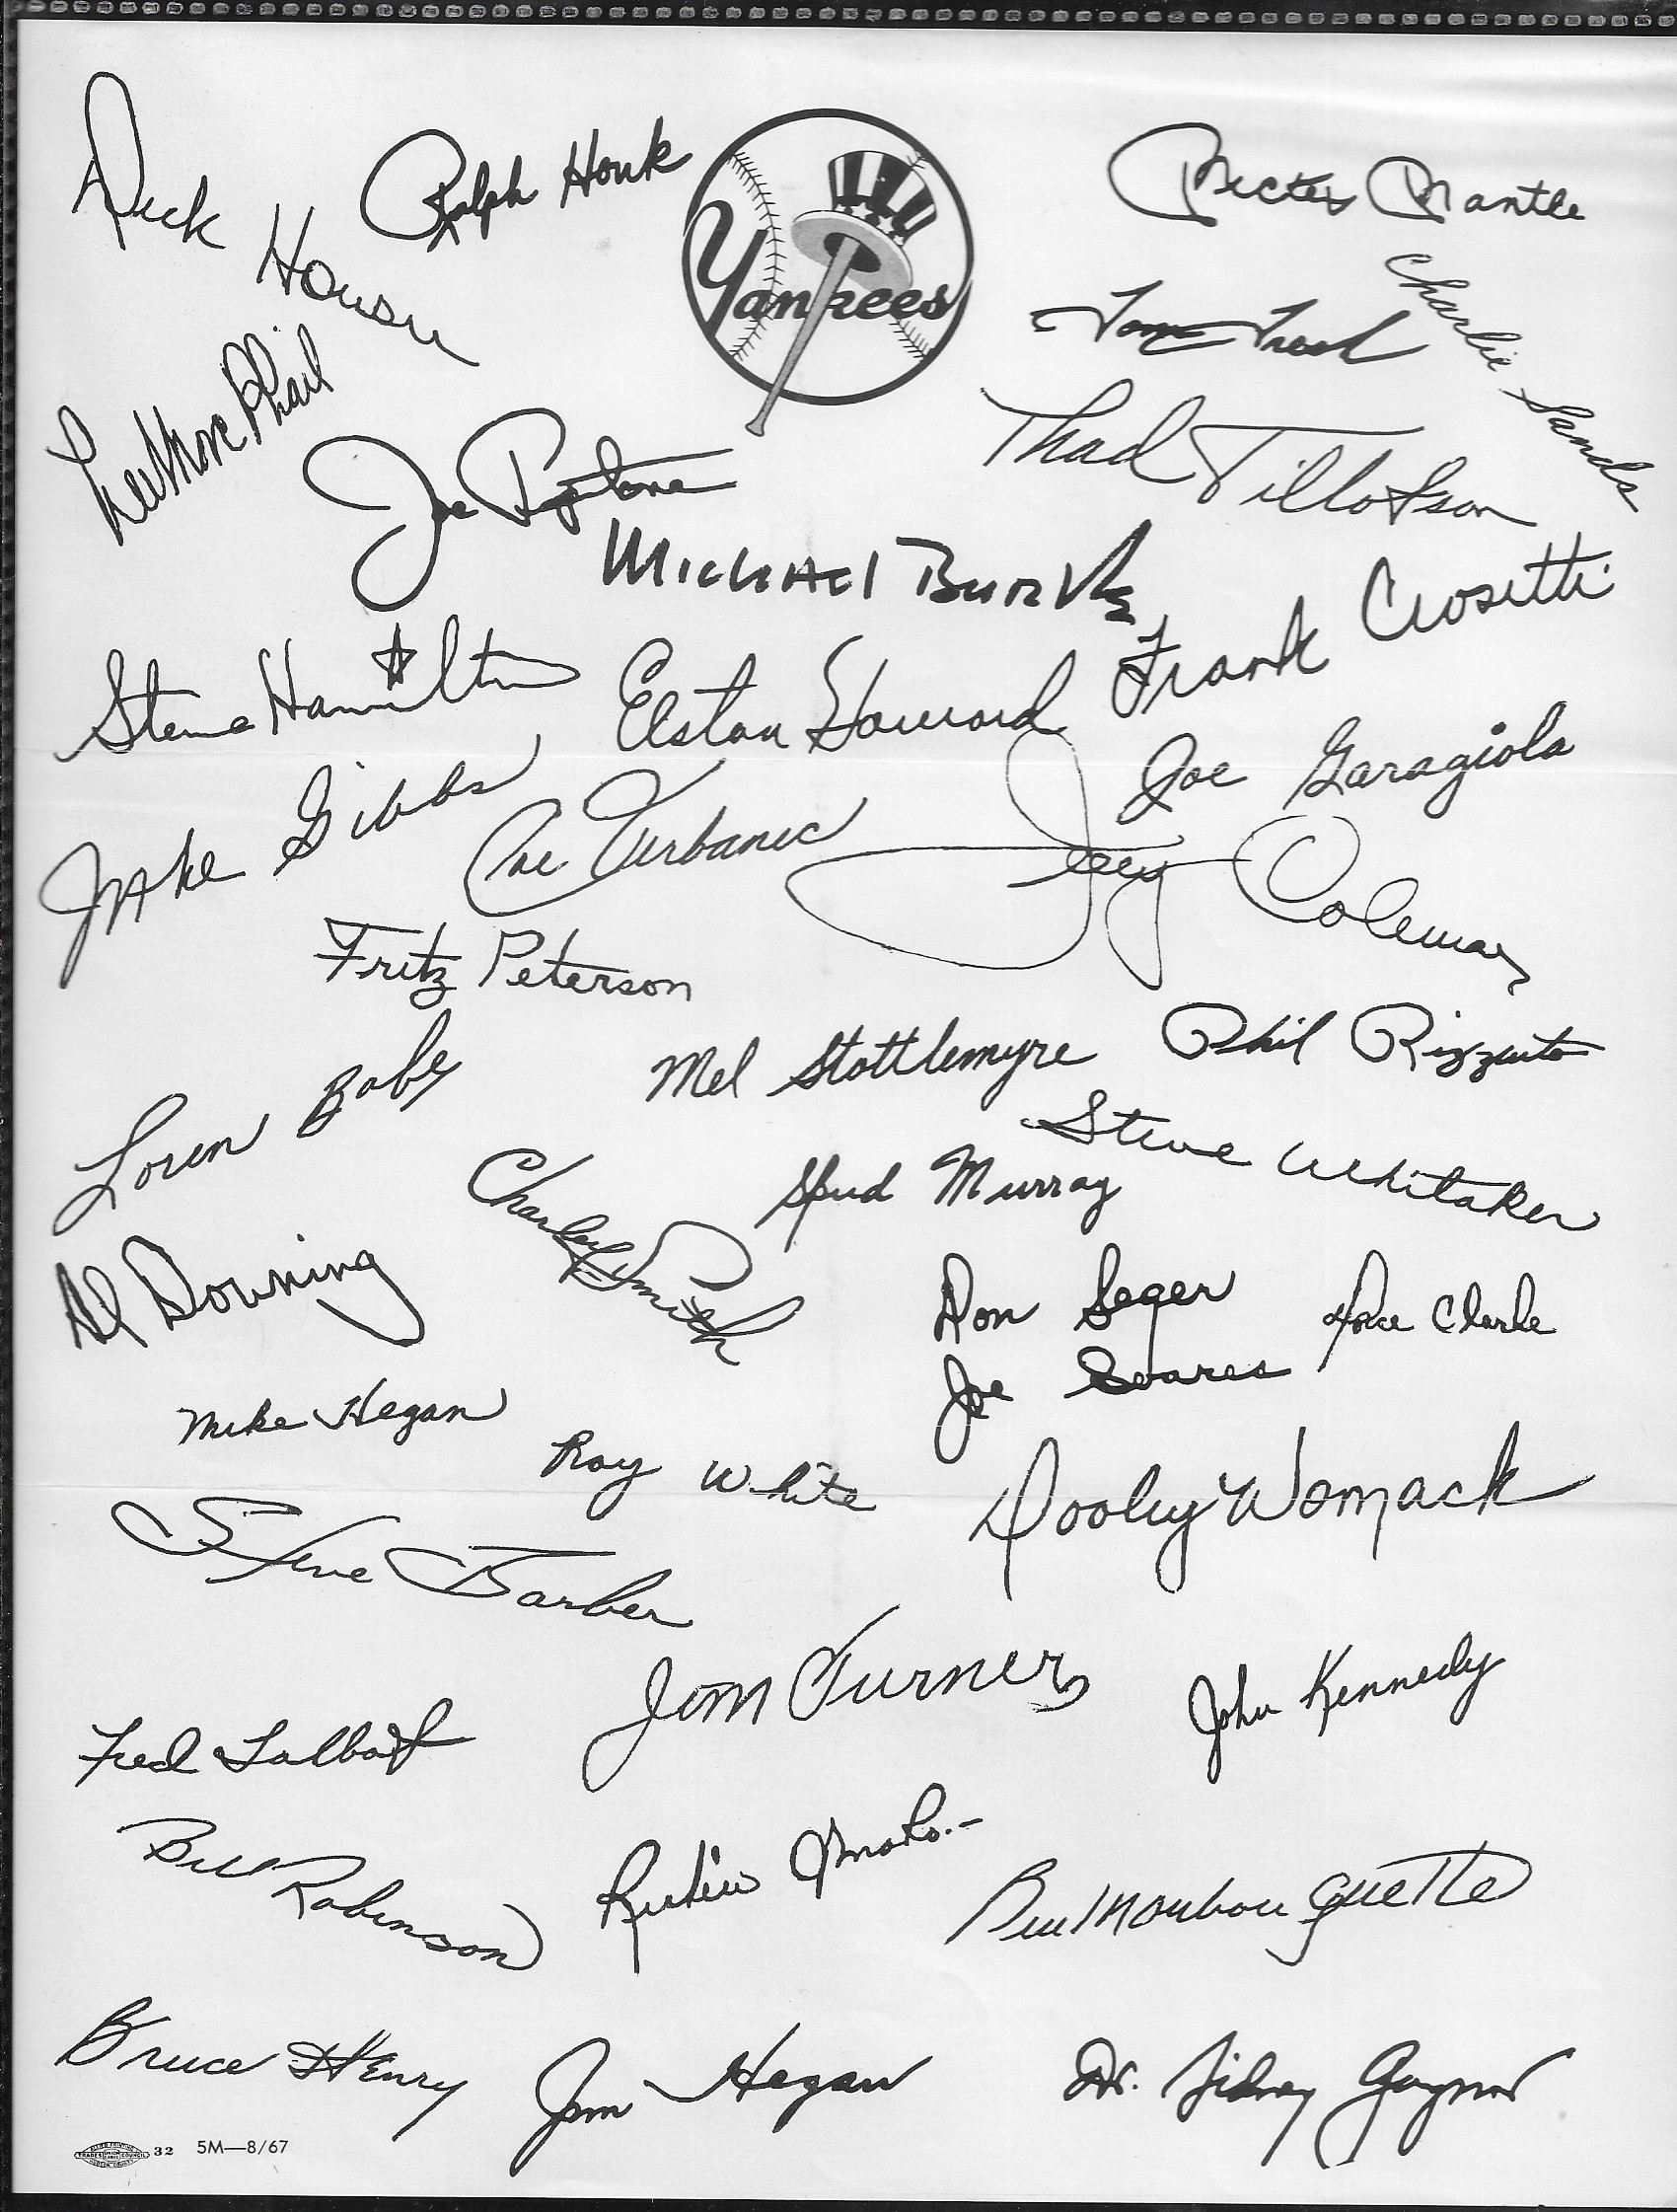 Dick Howser
Ralph Houk
Yankees
Mickey Mantle
Tom Tresh
Charlie Sands
Lee MacPhail
Joe Pepitone
Thad Tillotson
Michael Burke
Frank Crosetti
Steve Hamilton
Elston Howard
Joe Garagiola
Jake Gibbs
Joe Verbanic
Jerry Coleman
Fritz Peterson
Mel Stottlemyre
Phil Rizzuto
Loren Babe
Steve Whitaker
Charley Smith
Spud Murray
Al Downing
Don Seger
Horace Clarke
Joe Soares
Mike Hegan
Roy White
Dooley Womack
Steve Barber
Jim Turner
John Kennedy
Fred Talbot
Bill Robinson
Ruben Amaro
Bill Monbouquette
Bruce Henry
Jim Hegan
Dr. Sidney Gaynor
32 5M—8/67